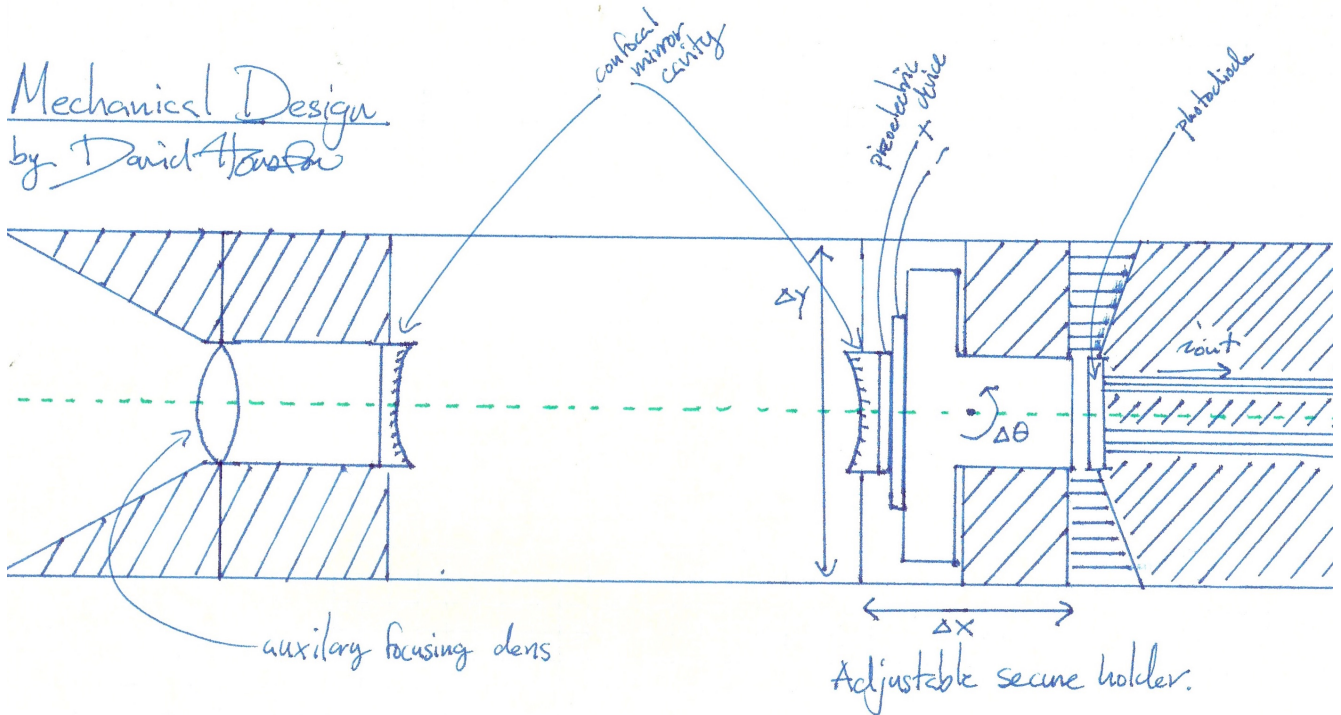 Mechanical Design
by David Houston
confocal
mirror
cavity
piezoelectric
device
+
-
photodiode
ΔY
iout
Δθ
ΔX
auxilary focusing lens
Adjustable secure holder.